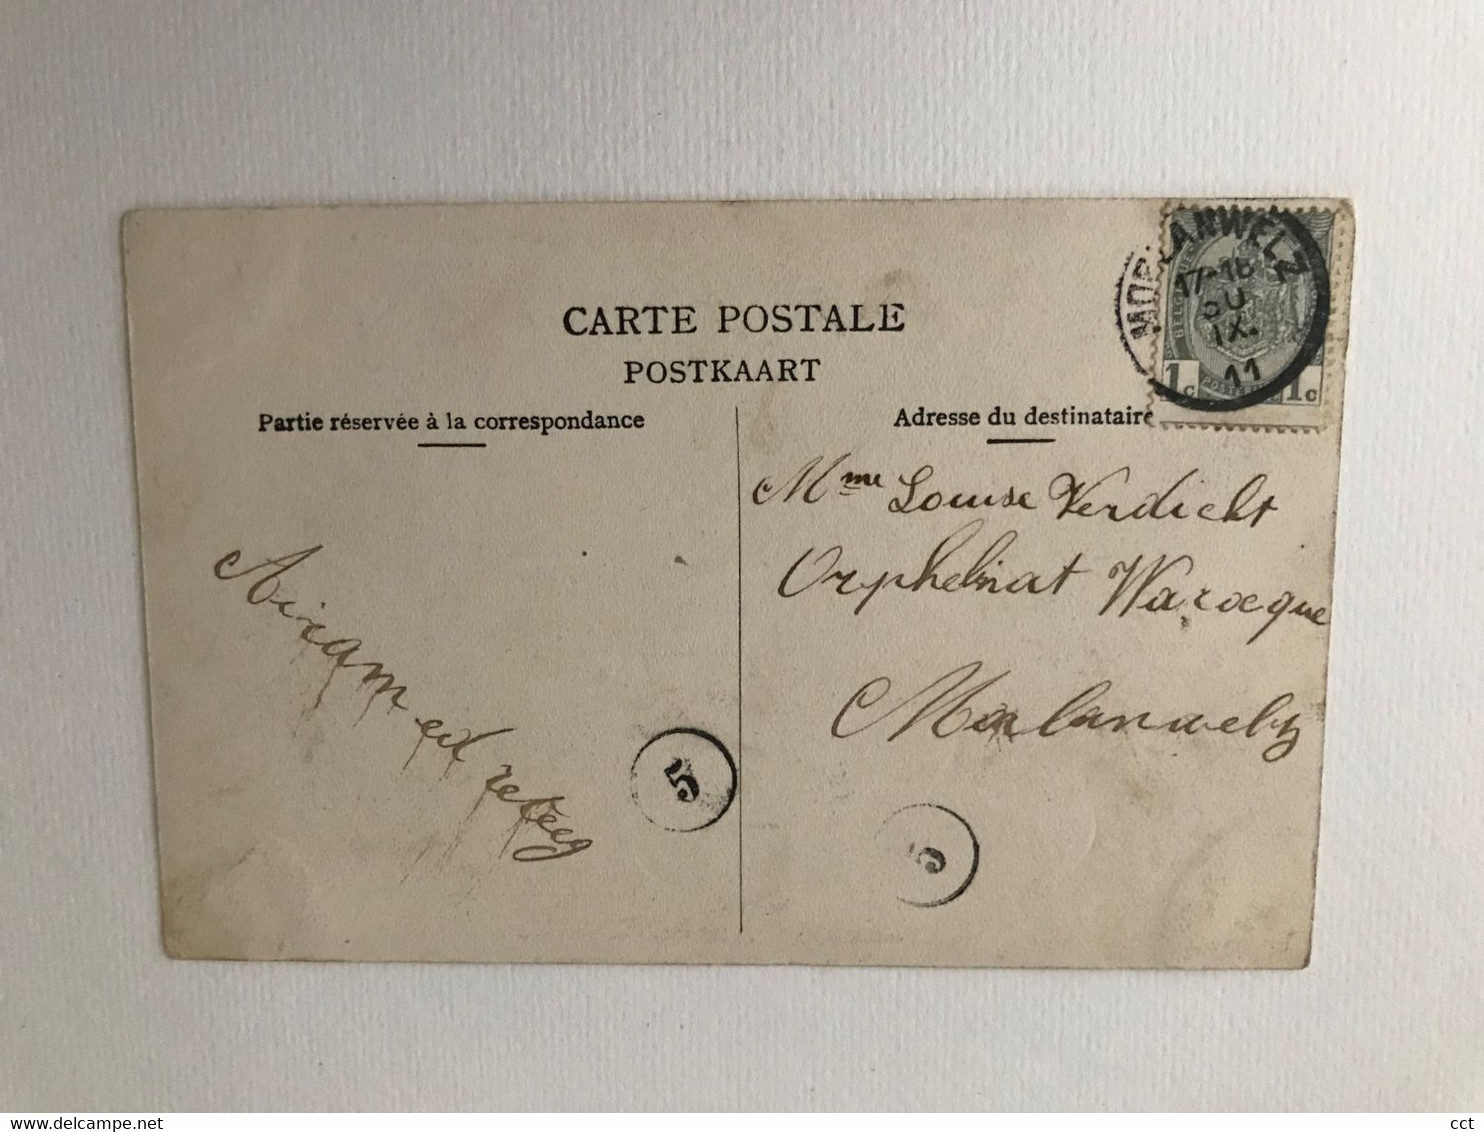 CARTE POSTALE
POSTKAART
Partie réservée à la correspondance
Adresse du destinataire
MORLANWELZ
17-18
30
IX
11
1c 1c
Mme Louise Verdickt
Orphelinat Warocque
Morlanwelz
5
5
cct